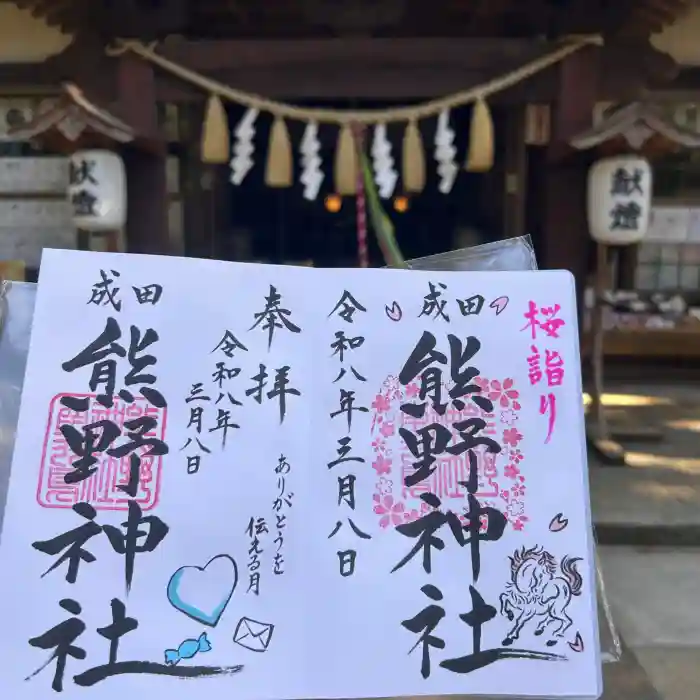 献燈
献燈
桜詣り
成田
熊野神社
令和八年三月八日
奉拝
令和八年
三月八日
ありがとうを
伝える月
成田
熊野神社